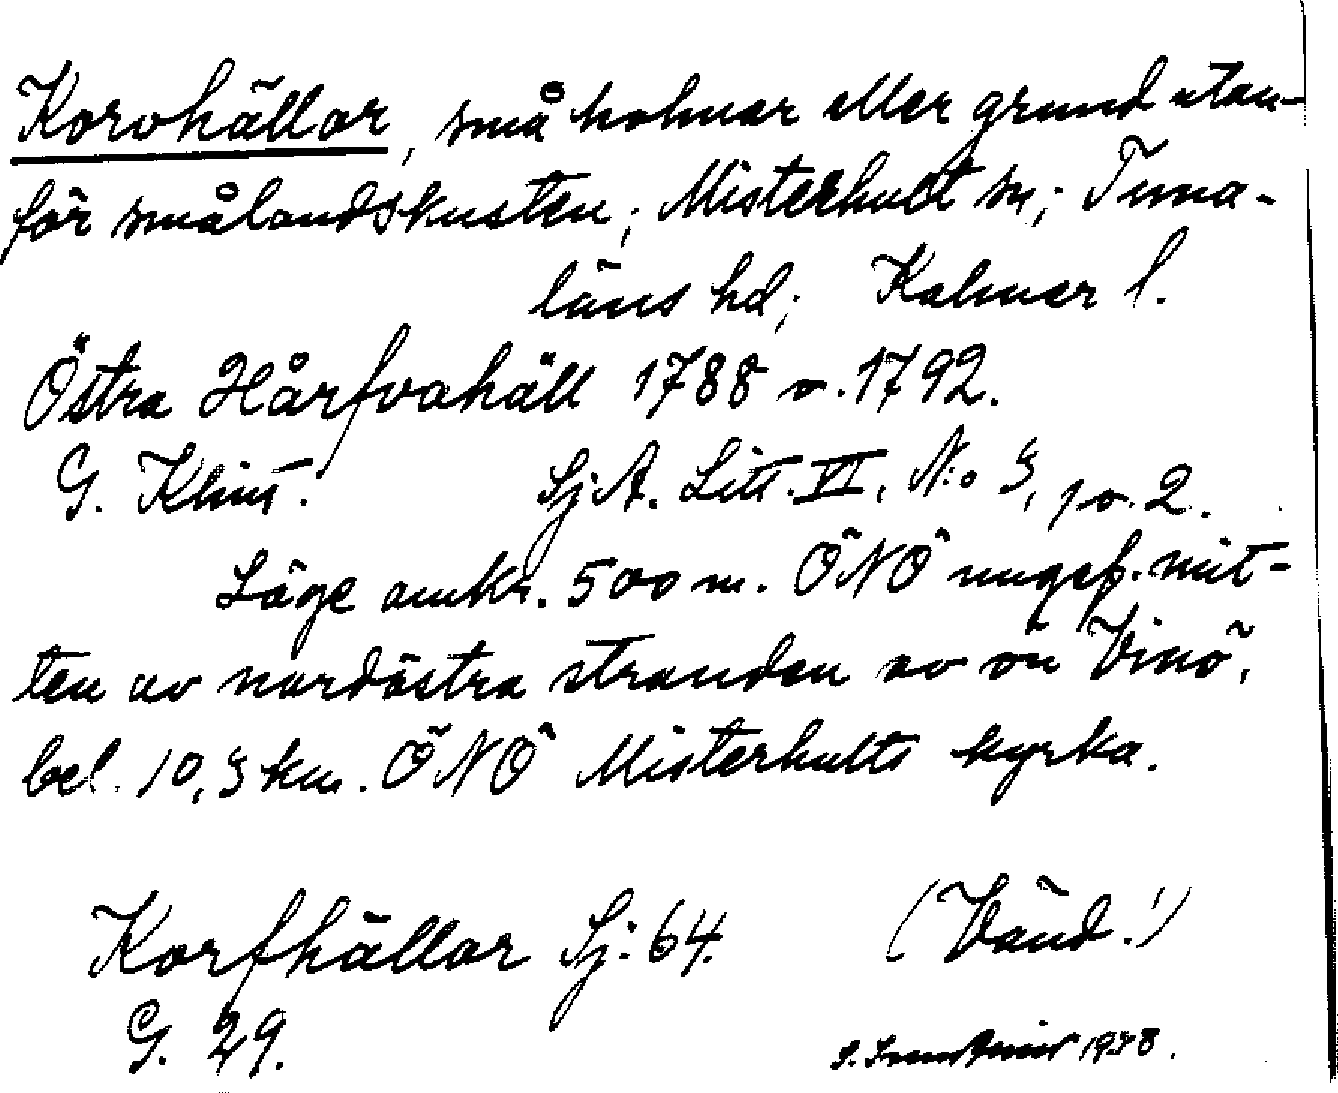 Korvhällar, små holmar eller grund utan-
för smålandskusten; Misterhult sn; Tuna-
läns hd; Kalmar l.
Östra Hårfvahäll 1788 o. 1792.
G. Klint. Sj.A. Litt. VI, N:o 3, 1 o. 2.
Läge omkr. 500 m. ÖNÖ ungef. mit-
ten av nordöstra stranden av ön Vinö,
bel. 10,3 km. ÖNÖ Misterhults kyrka.
Korfhällar Sj: 64. (Vänd!)
G. 29.
1938.